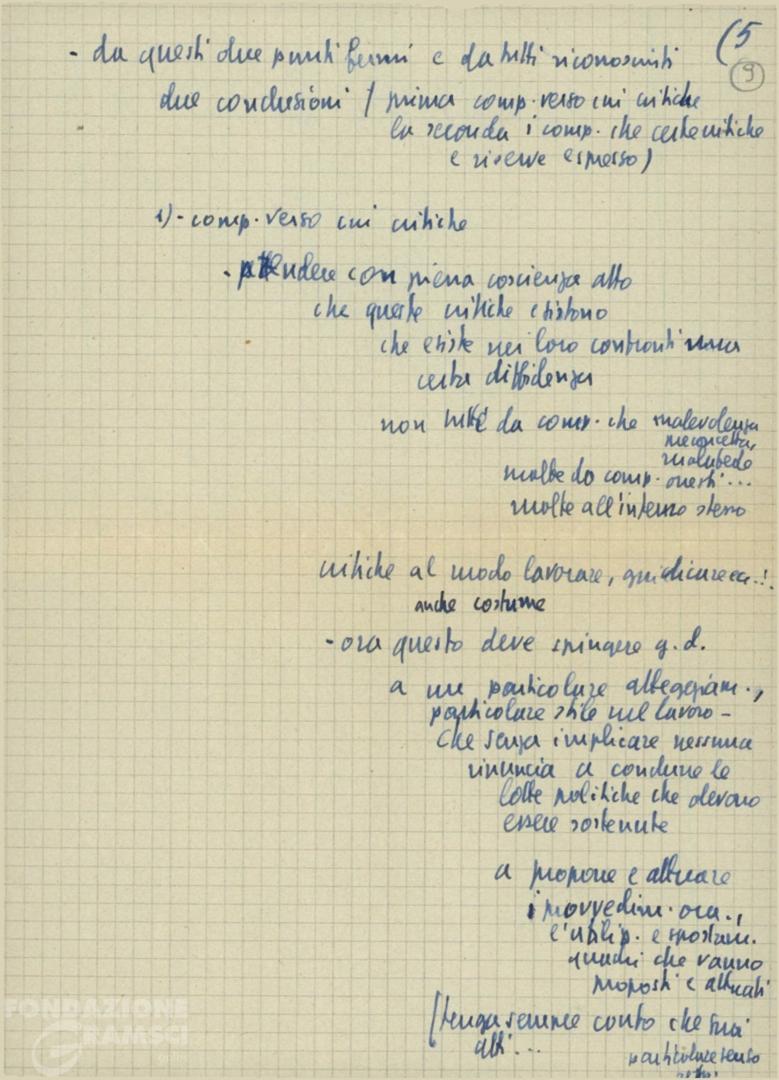 (5
9
- da questi due punti fermi e da tutti riconosciuti
due conclusioni / prima comp. verso cui critiche
la seconda i comp. che certe critiche
e riserve espresso)
1) - comp. verso cui critiche
- prendere con piena coscienza atto
che queste critiche esistono
che esiste nei loro confronti una
certa diffidenza
non tutte da comp. che malevolenza
preconcetta,
malafede
molte da comp. onesti ...
molte all'interno stesso
critiche al modo lavorare, giudicare ecc...
anche costume
- ora questo deve spingere g. d.
a un particolare atteggiam.,
particolare stile nel lavoro -
che senza implicare nessuna
rinuncia a condurre le
lotte politiche che devono
essere sostenute
a proporre e attuare
i provvedim. ora.,
l'utiliz. e spostam.
quadri che vanno
proposti e attuati
(tenga sempre conto che suoi
atti ...
particolare senso
FONDAZIONE
GRAMSCI